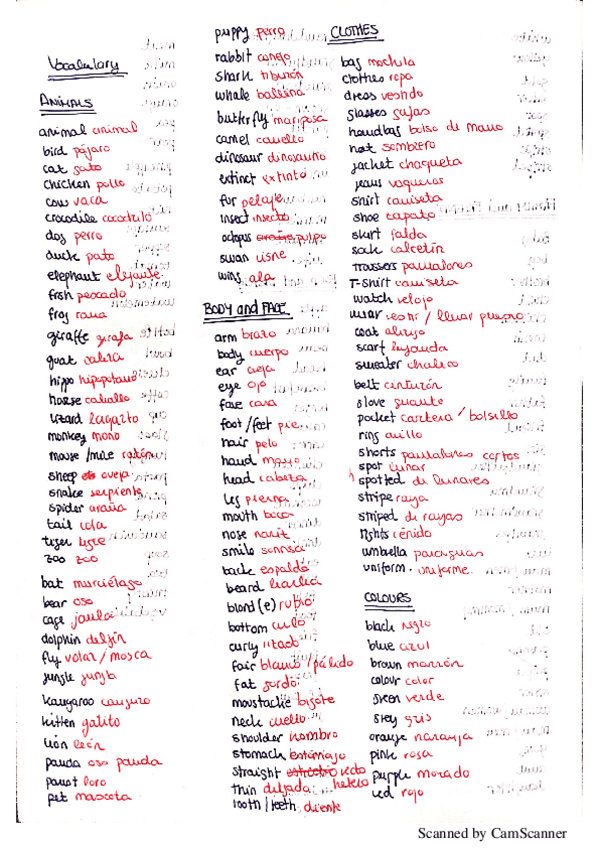 Vocabulary
ANIMALS
animal animal
bird pájaro
cat gato
chicken pollo
cow vaca
crocodile cocodrilo
dog perro
duck pato
elephant elefante
fish pescado
frog rana
giraffe girafa
goat cabra
hippo hipopotamo
horse caballo
lizard lagarto
monkey mono
mouse/mice ratón
sheep oveja
snake serpiente
spider araña
tail cola
tiger tigre
zoo zoo
bat murciélago
bear oso
cage jaula
dolphin delfín
fly volar / mosca
jungle jungla
kangaroo canguro
kitten gatito
lion león
panda oso panda
parrot loro
pet mascota
puppy perro
rabbit conejo
shark tiburón
whale ballena
butterfly mariposa
camel camello
dinosaur dinosaurio
extinct extinto
fur pelaje
insect insecto
octopus pulpo
swan cisne
wing ala
BODY and FACE
arm brazo
body cuerpo
ear oreja
eye ojo
face cara
foot/feet pie
hair pelo
hand mano
head cabeza
leg pierna
mouth boca
nose nariz
smile sonrisa
back espalda
beard barba
blond(e) rubio
bottom culo
curly rizado
fair blanco / pálido
fat gordo
moustache bigote
neck cuello
shoulder hombro
stomach estómago
straight recto
thin delgada
tooth/teeth diente
CLOTHES
bag mochila
clothes ropa
dress vestido
glasses gafas
handbag bolso de mano
hat sombrero
jacket chaqueta
jeans vaqueros
shirt camiseta
shoe zapato
skirt falda
sock calcetín
trousers pantalones
T-shirt camiseta
watch reloj
wear vestir / llevar puesto
coat abrigo
scarf bufanda
sweater chaleco
belt cinturón
glove guante
pocket cartera / bolsillo
ring anillo
shorts pantalones cortos
spot lunar
spotted de lunares
stripe raya
striped de rayas
tights ceñido
umbrella paraguas
uniform · uniforme
COLOURS
black negro
blue azul
brown marrón
colour color
green verde
grey gris
orange naranja
pink rosa
purple morado
red rojo
Scanned by CamScanner